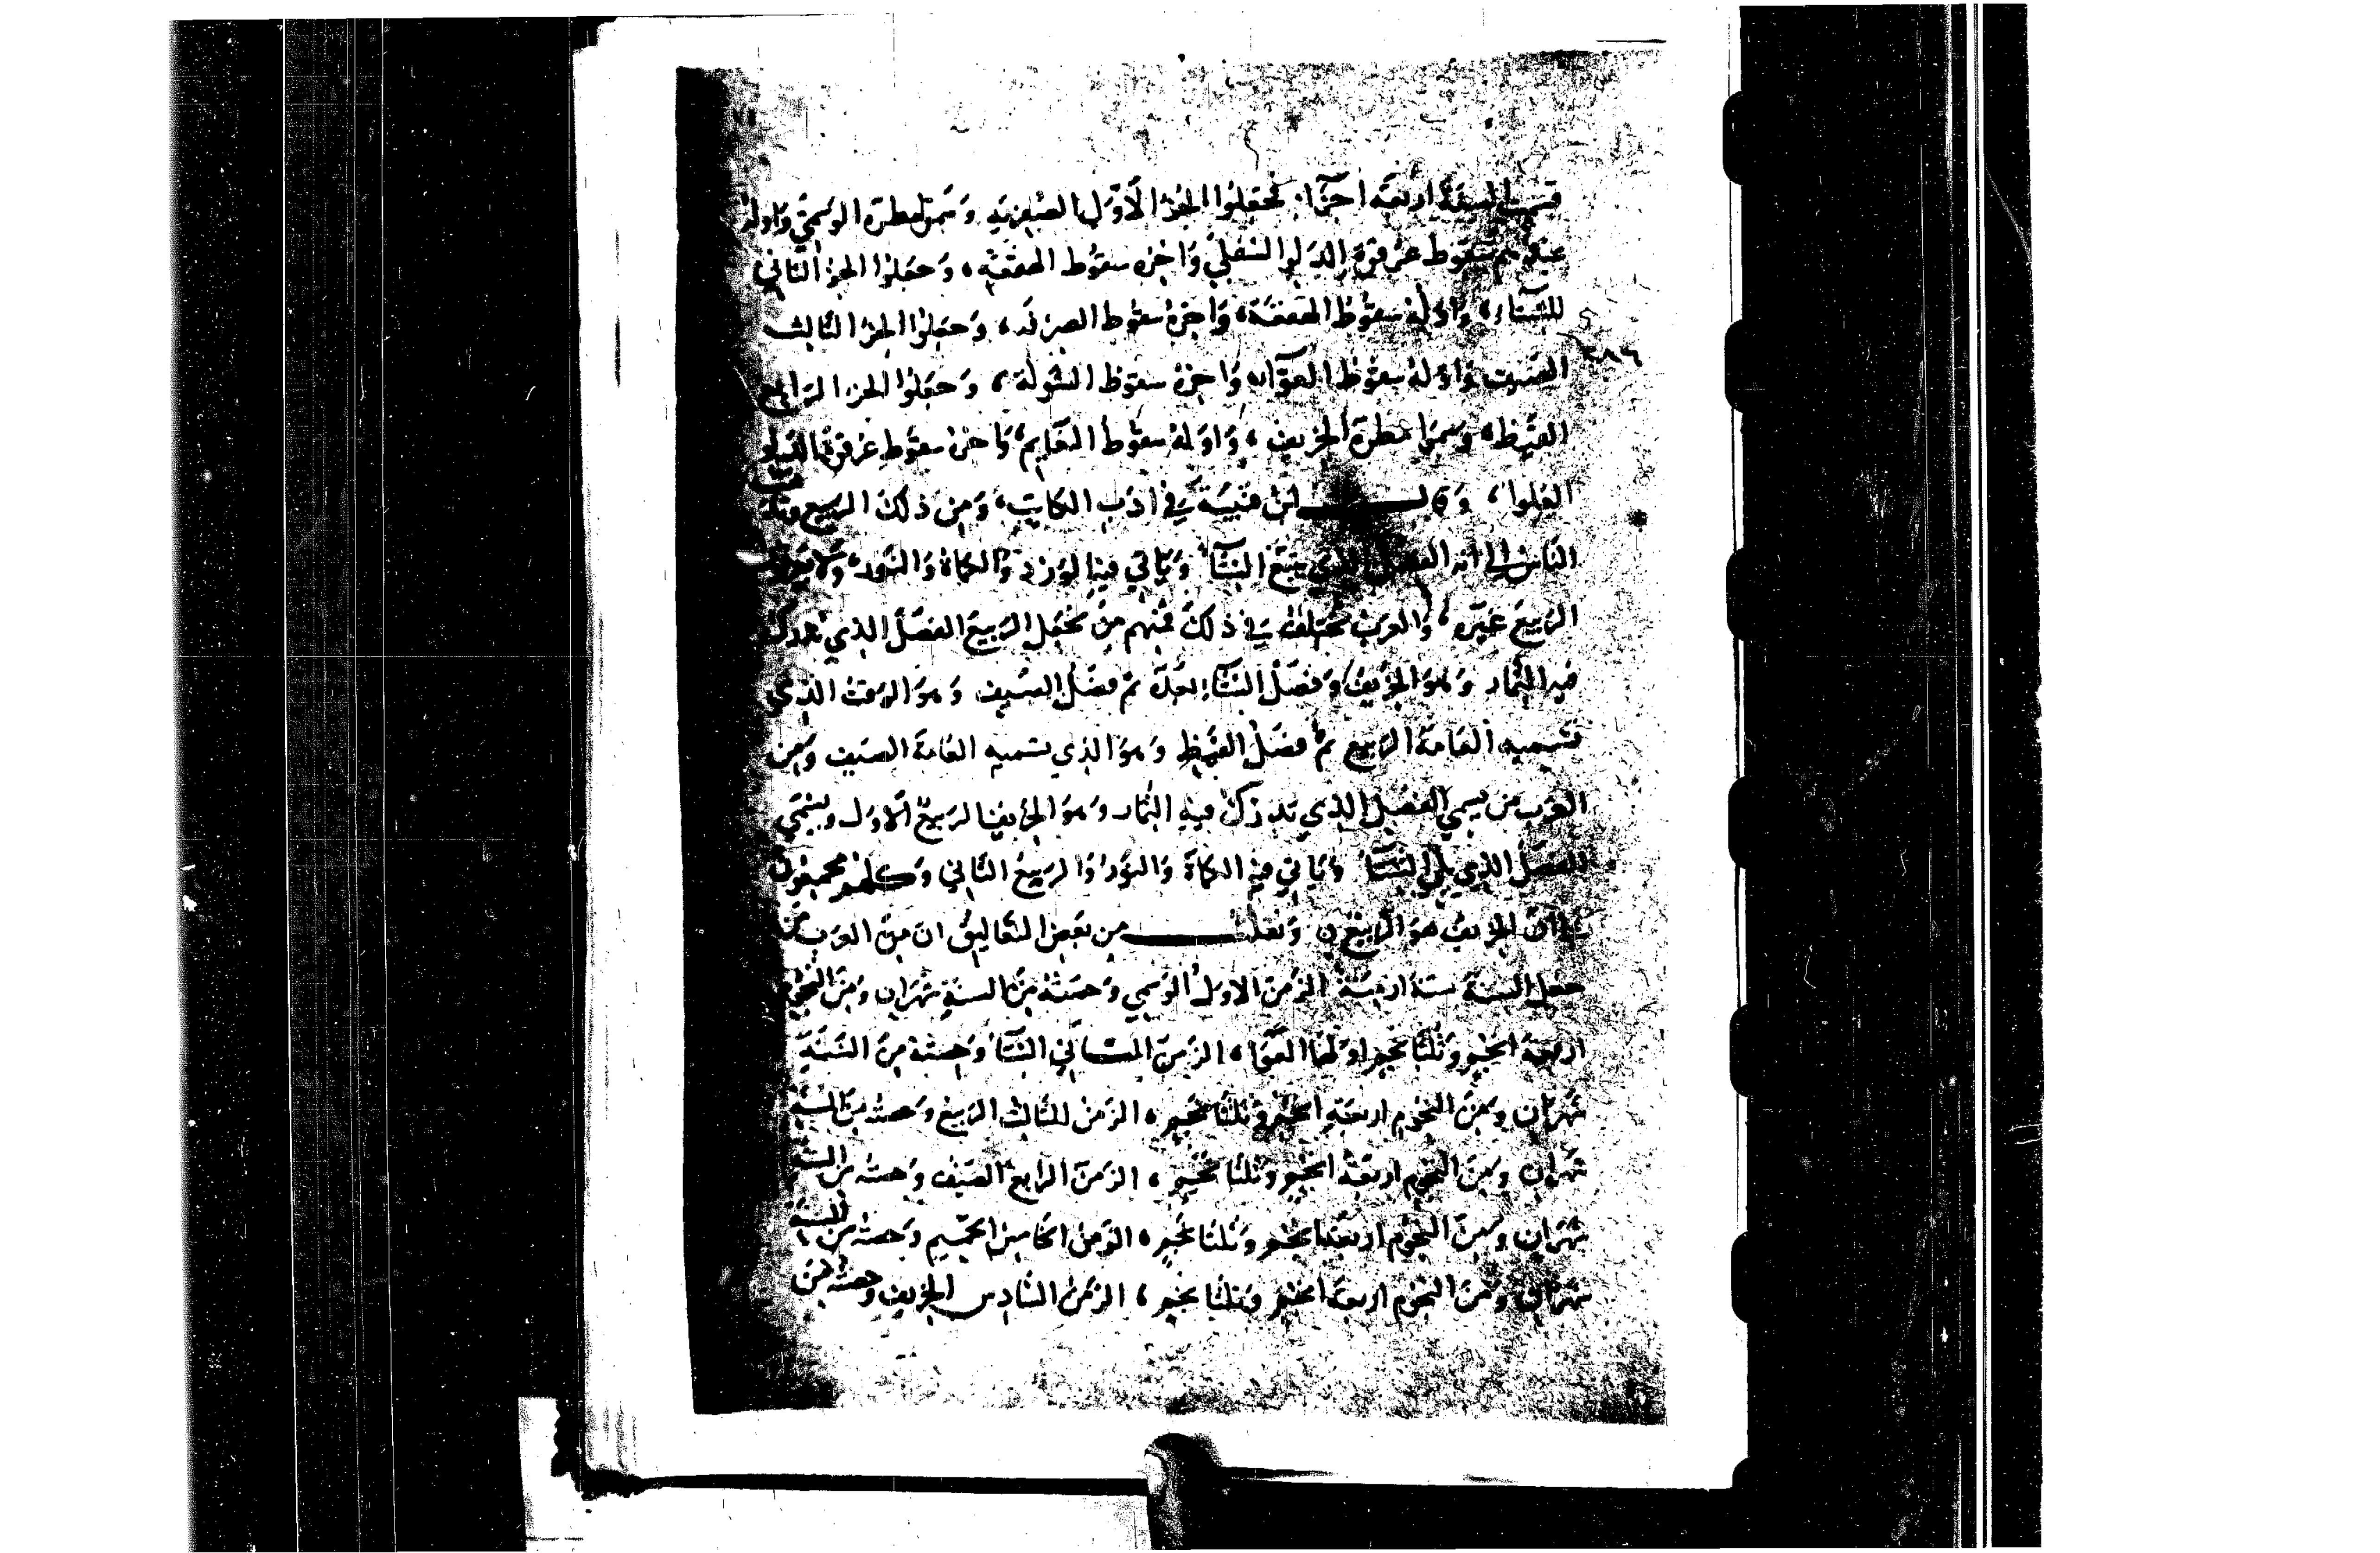 قسمت السنة اربعة اجزا. فجعلوا الجز الاول الصفرية وسموا مطره الوسمي واوله
عندهم سقوط عرقوة الدلو السفلي واخره سقوط الهقعة، وجعلوا الجز الثاني
للشتاء، واوله سقوط الهقعة، واخره سقوط الصرفه، وجعلوا الجز الثالث
٢٨٦
الصيف واوله سقوط العوآء واخره سقوط الشولة، وجعلوا الجز الرابع
القيظ، وسموا مطره الخريف، واوله سقوط النعايم، واخره سقوط عرقوة الدلو
العليا، وقال ابن قتيبة في ادب الكاتب، ومن ذلك الربيع يذهب
الناس الى انه الفصل الذي يتبع الشتآ وياتي فيه الورد والكماة والنور ولا يعرفون
الربيع غيره، والعرب تختلف في ذلك فمنهم من يجعل الربيع الفصل الذي تدرك
فيه الثمار وهو الخريف وفصل الشتآء بعده ثم فصل الصيف وهو الوقت الذي
تسميه العامة الربيع ثم فصل القيظ وهو الذي تسميه العامة الصيف ومن
العرب من يسمي الفصل الذي تدرك فيه الثمار وهو الخريف الربيع الاول ويسمي
الفصل الذي يلي الشتآ وياتي فيه الكماة والنور الربيع الثاني وكلهم مجمعون
ان الخريف هو الربيع ونقلت من بعض التعاليق ان من العرب من
جعل السنة ستة ازمنة الزمن الاول الوسمي وحصته من السنة شهران ومن النجوم
اربعة انجم وثلثا نجم اولها العوا، الزمن الثاني الشتآ وحصته من السنة
شهران ومن النجوم اربعة انجم وثلثا نجم، الزمن الثالث الربيع وحصته من السنة
شهران ومن النجوم اربعة انجم وثلثا نجم، الزمن الرابع الصيف وحصته من السنة
شهران ومن النجوم اربعة انجم وثلثا نجم، الزمن الخامس الحميم وحصته من السنة
شهران ومن النجوم اربعة انجم وثلثا نجم، الزمن السادس الخريف وحصته من